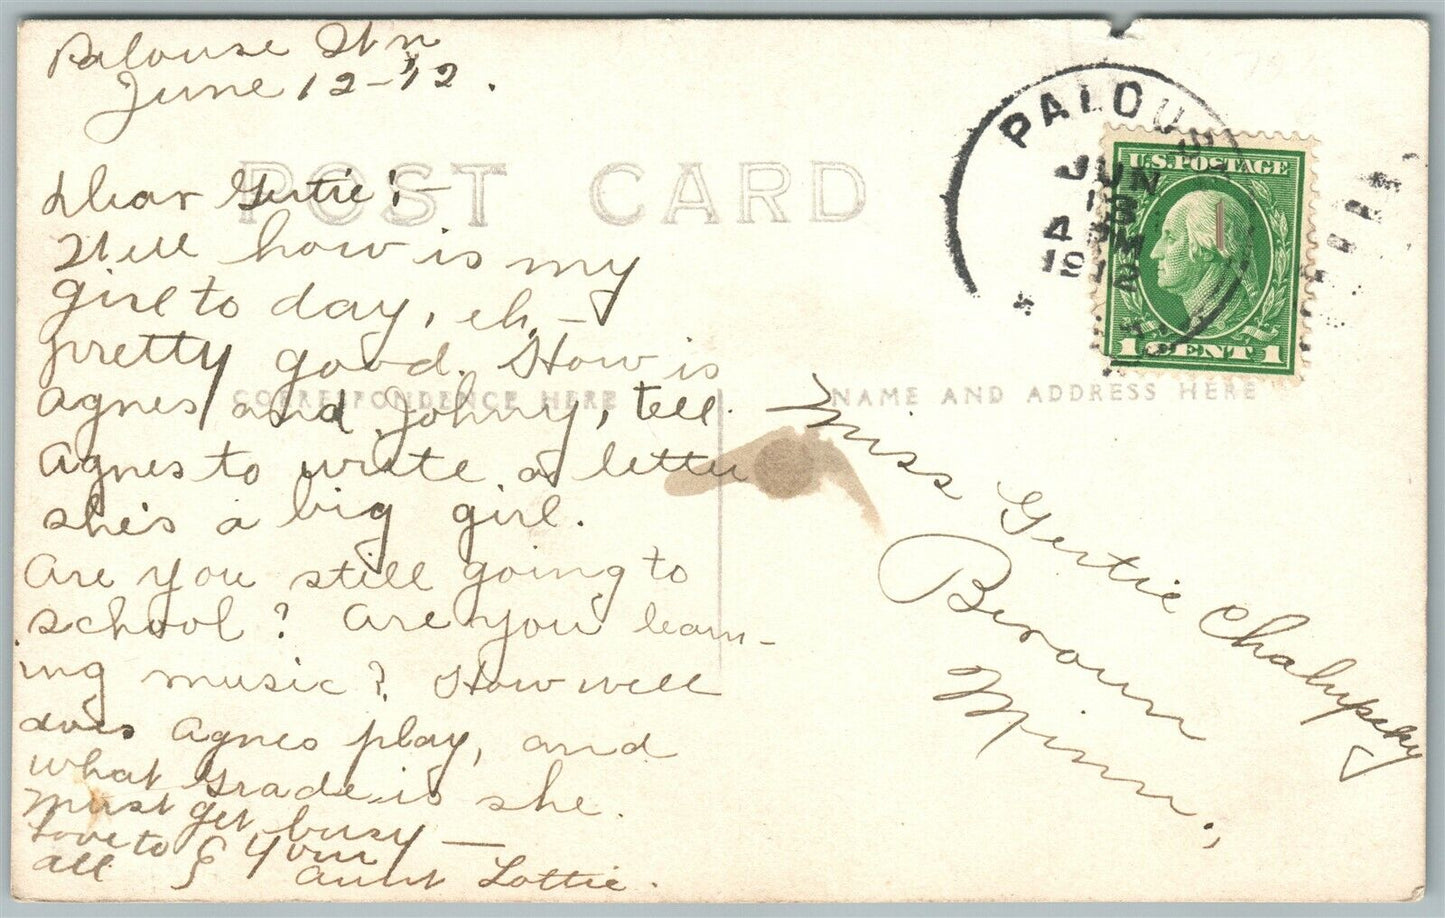 Palouse Wn
June 12-12.
POST CARD
Dear Gertie:-
Well how is my
girl to day, eh, -
pretty good. How is
Agnes and Johny, tell
Agnes to write a letter
she's a big girl.
Are you still going to
school? Are you learn-
ing music? How well
does Agnes play, and
what grade is she.
Must get busy —
Love to
all & Your
Aunt Lottie.
CORRESPONDENCE HERE
NAME AND ADDRESS HERE
PALOUSE
JUN
13
4 PM
1912
U.S. POSTAGE
1 CENT 1
Miss Gertie Chalupsky
Brown
Minn.